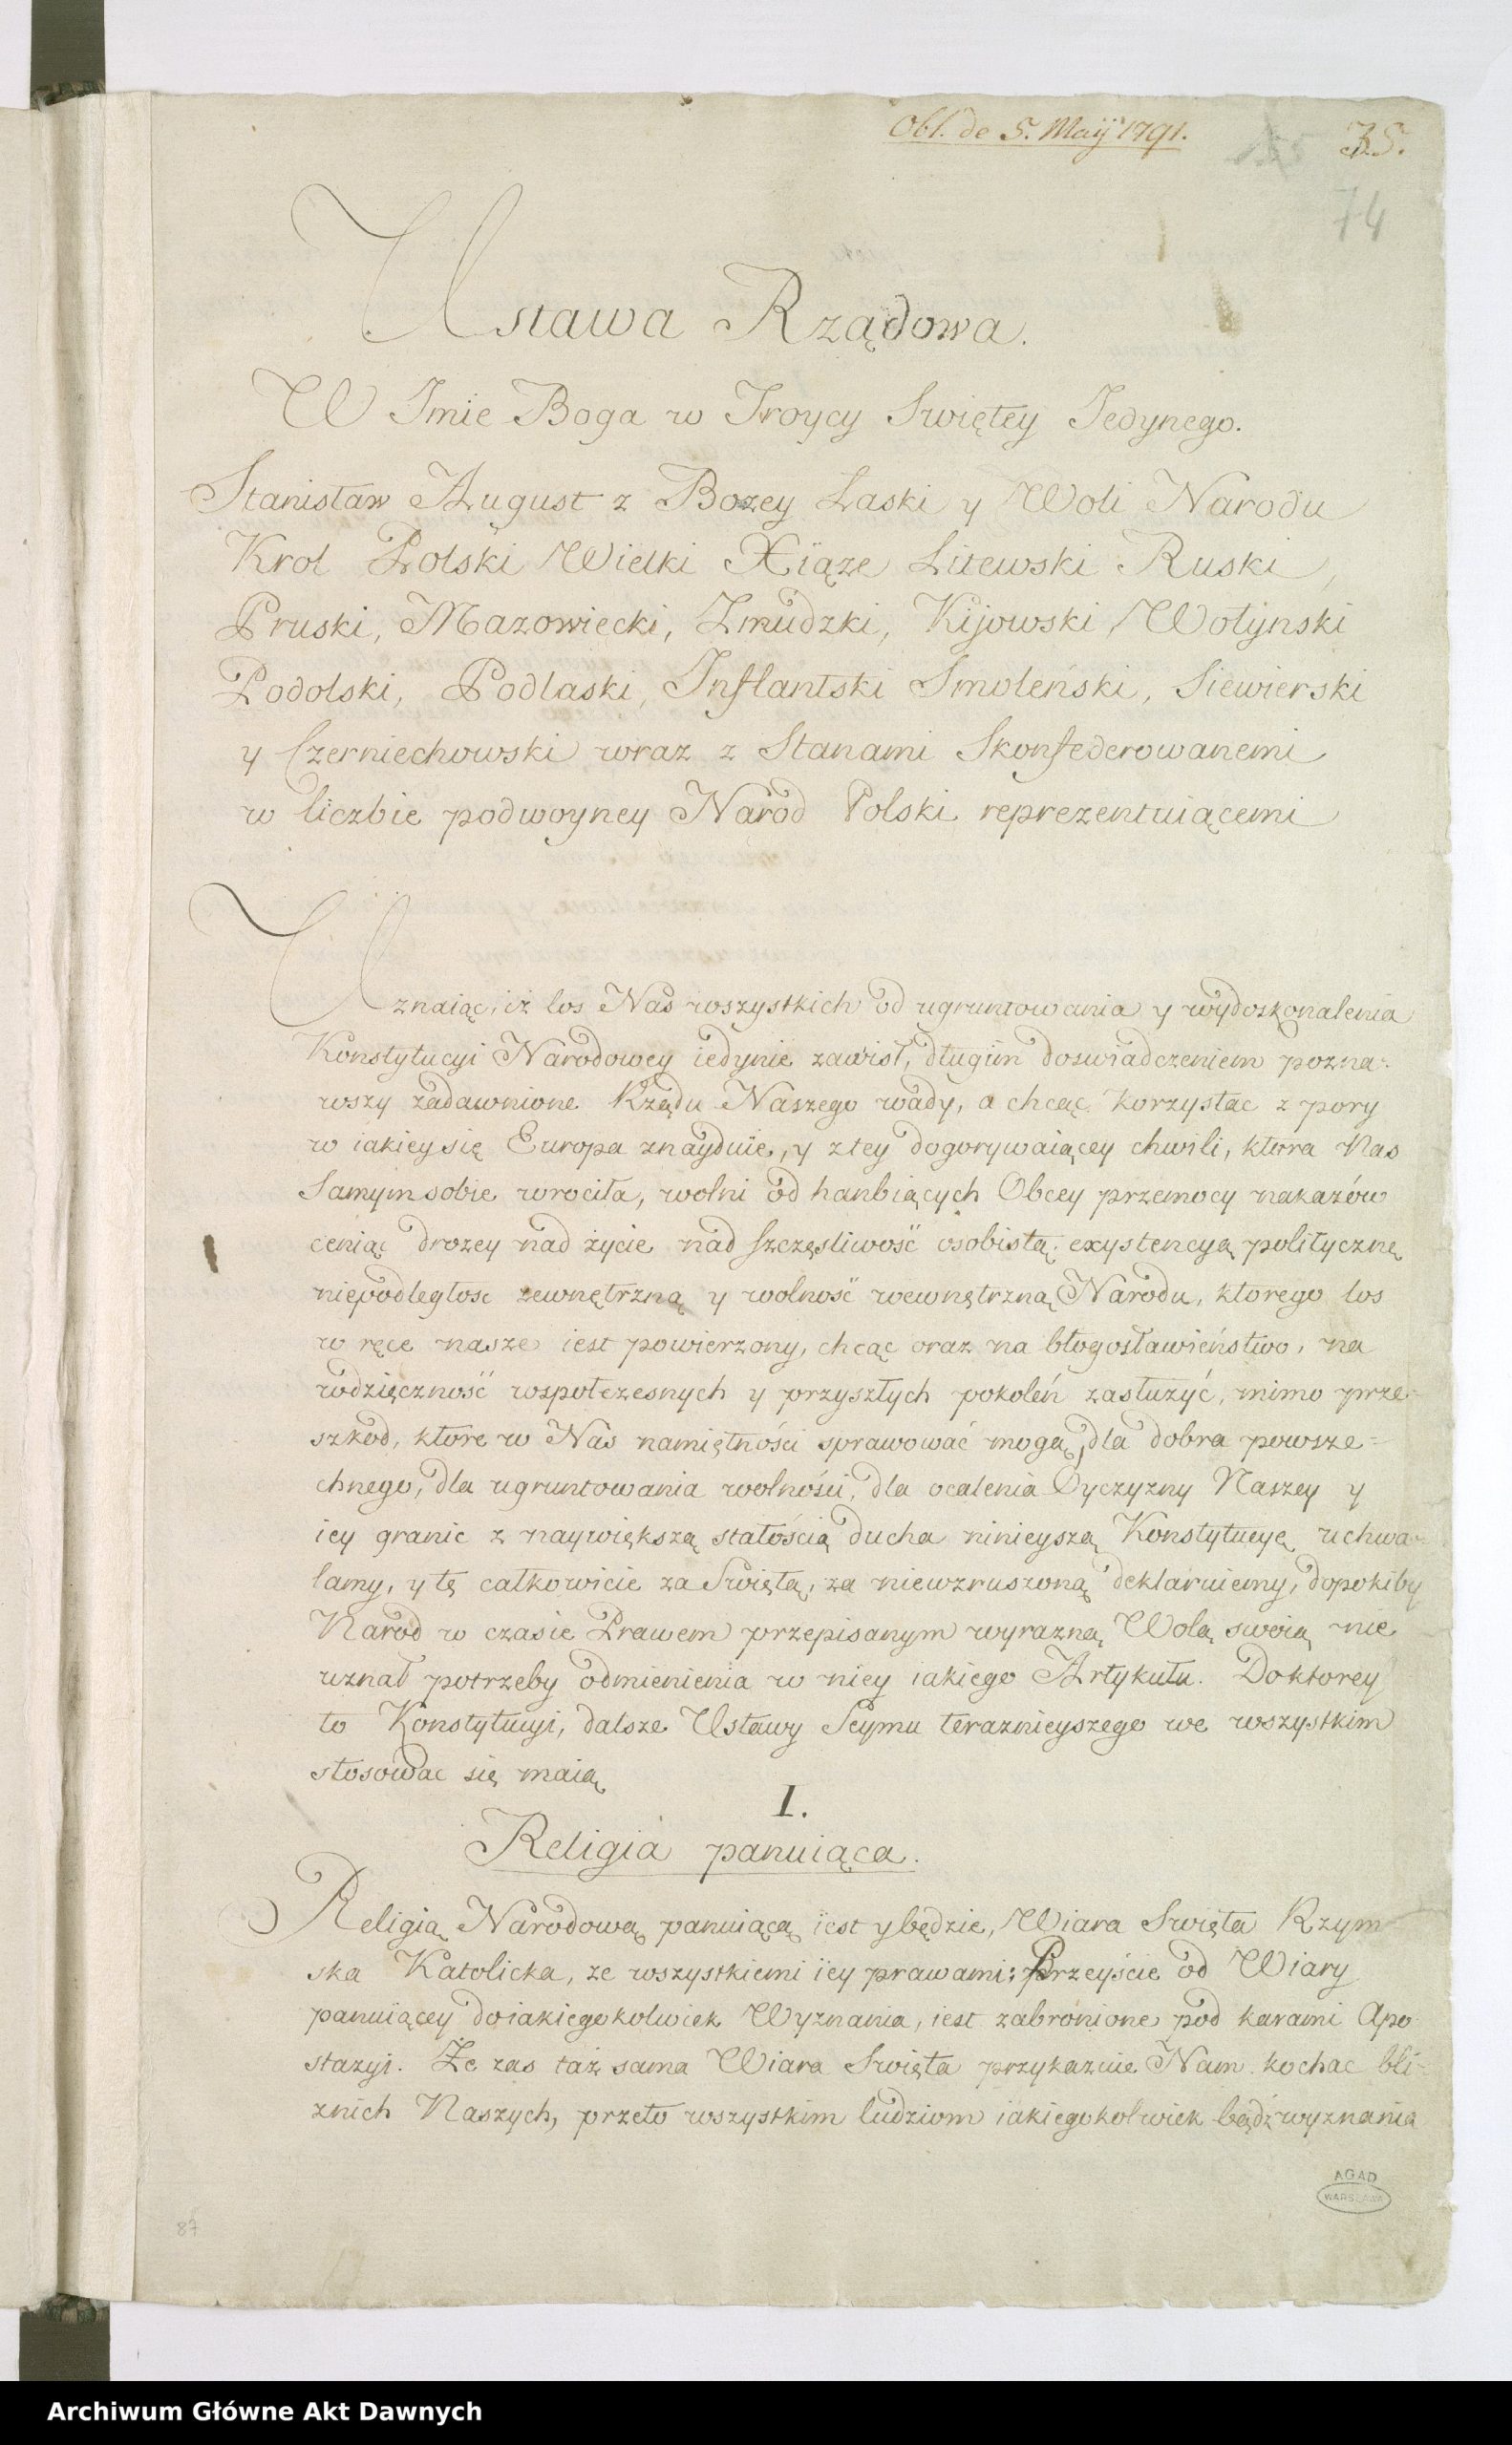 Obl. de 5. Maij 1791.
35.
74
Ustawa Rządowa.
W Imie Boga w Troycy Swiętey Jedynego.
Stanisław August z Bozey Łaski y Woli Narodu
Krol Polski Wielki Xiąze Litewski Ruski,
Pruski, Mazowiecki, Zmudzki, Kijowski, Wołynski
Podolski, Podlaski, Inflantski Smoleński, Siewierski
y Czerniechowski wraz z Stanami Skonfederowanemi
w liczbie podwoyney Naród Polski reprezentuiącemi
Uznaiąc, iż los Nas wszystkich od ugruntowania y wydoskonalenia
Konstytucyi Narodowey iedynie zawisł, długim doswiadczeniem pozna-
wszy zadawnione Rządu Naszego wady, a chcąc korzystac z pory
w iakiey się Europa znayduie, y z tey dogorywaiącey chwili, ktora Nas
Samym sobie wrociła, wolni od hanbiących Obcey przemocy nakazów
ceniąc drozey nad życie nad szczęsliwość osobistą, exystencyą polityczną
niepodległosc zewnętrzną y wolność wewnętrzną Narodu, ktorego los
w ręce nasze iest powierzony, chcąc oraz na błogosławieństwo, na
wdzięczność wspołczesnych y przyszłych pokoleń zasłużyć, mimo prze=
szkod, które w Nas namiętności sprawować mogą, dla dobra powsze=
chnego, dla ugruntowania wolności, dla ocalenia Oyczyzny Naszey y
iey granic z naywiększą stałością ducha ninieyszą Konstytucyą uchwa-
lamy, y tę całkowicie za Swiętą, za niewzruszoną deklaruiemy, dopokiby
Narod w czasie Prawem przepisanym wyrazną Wolą swoią nie
uznał potrzeby odmienienia w niey iakiego Artykułu. Do ktorey
to Konstytucyi, dalsze Ustawy Seymu teraznieyszego we wszystkim
stosowac się maią
I.
Religia panuiąca.
Religią Narodową panuiącą iest y będzie, Wiara Swięta Rzym-
ska Katolicka, ze wszystkiemi iey prawami; Przeyście od Wiary
panuiącey do iakiegokolwiek Wyznania, iest zabronione pod karami Apo-
stazyi. Że zas taż sama Wiara Swięta przykazuie Nam kochac bli-
znich Naszych, przeto wszystkim ludziom iakiegokolwiek bądź wyznania
AGAD
WARSZAWA
87
Archiwum Główne Akt Dawnych